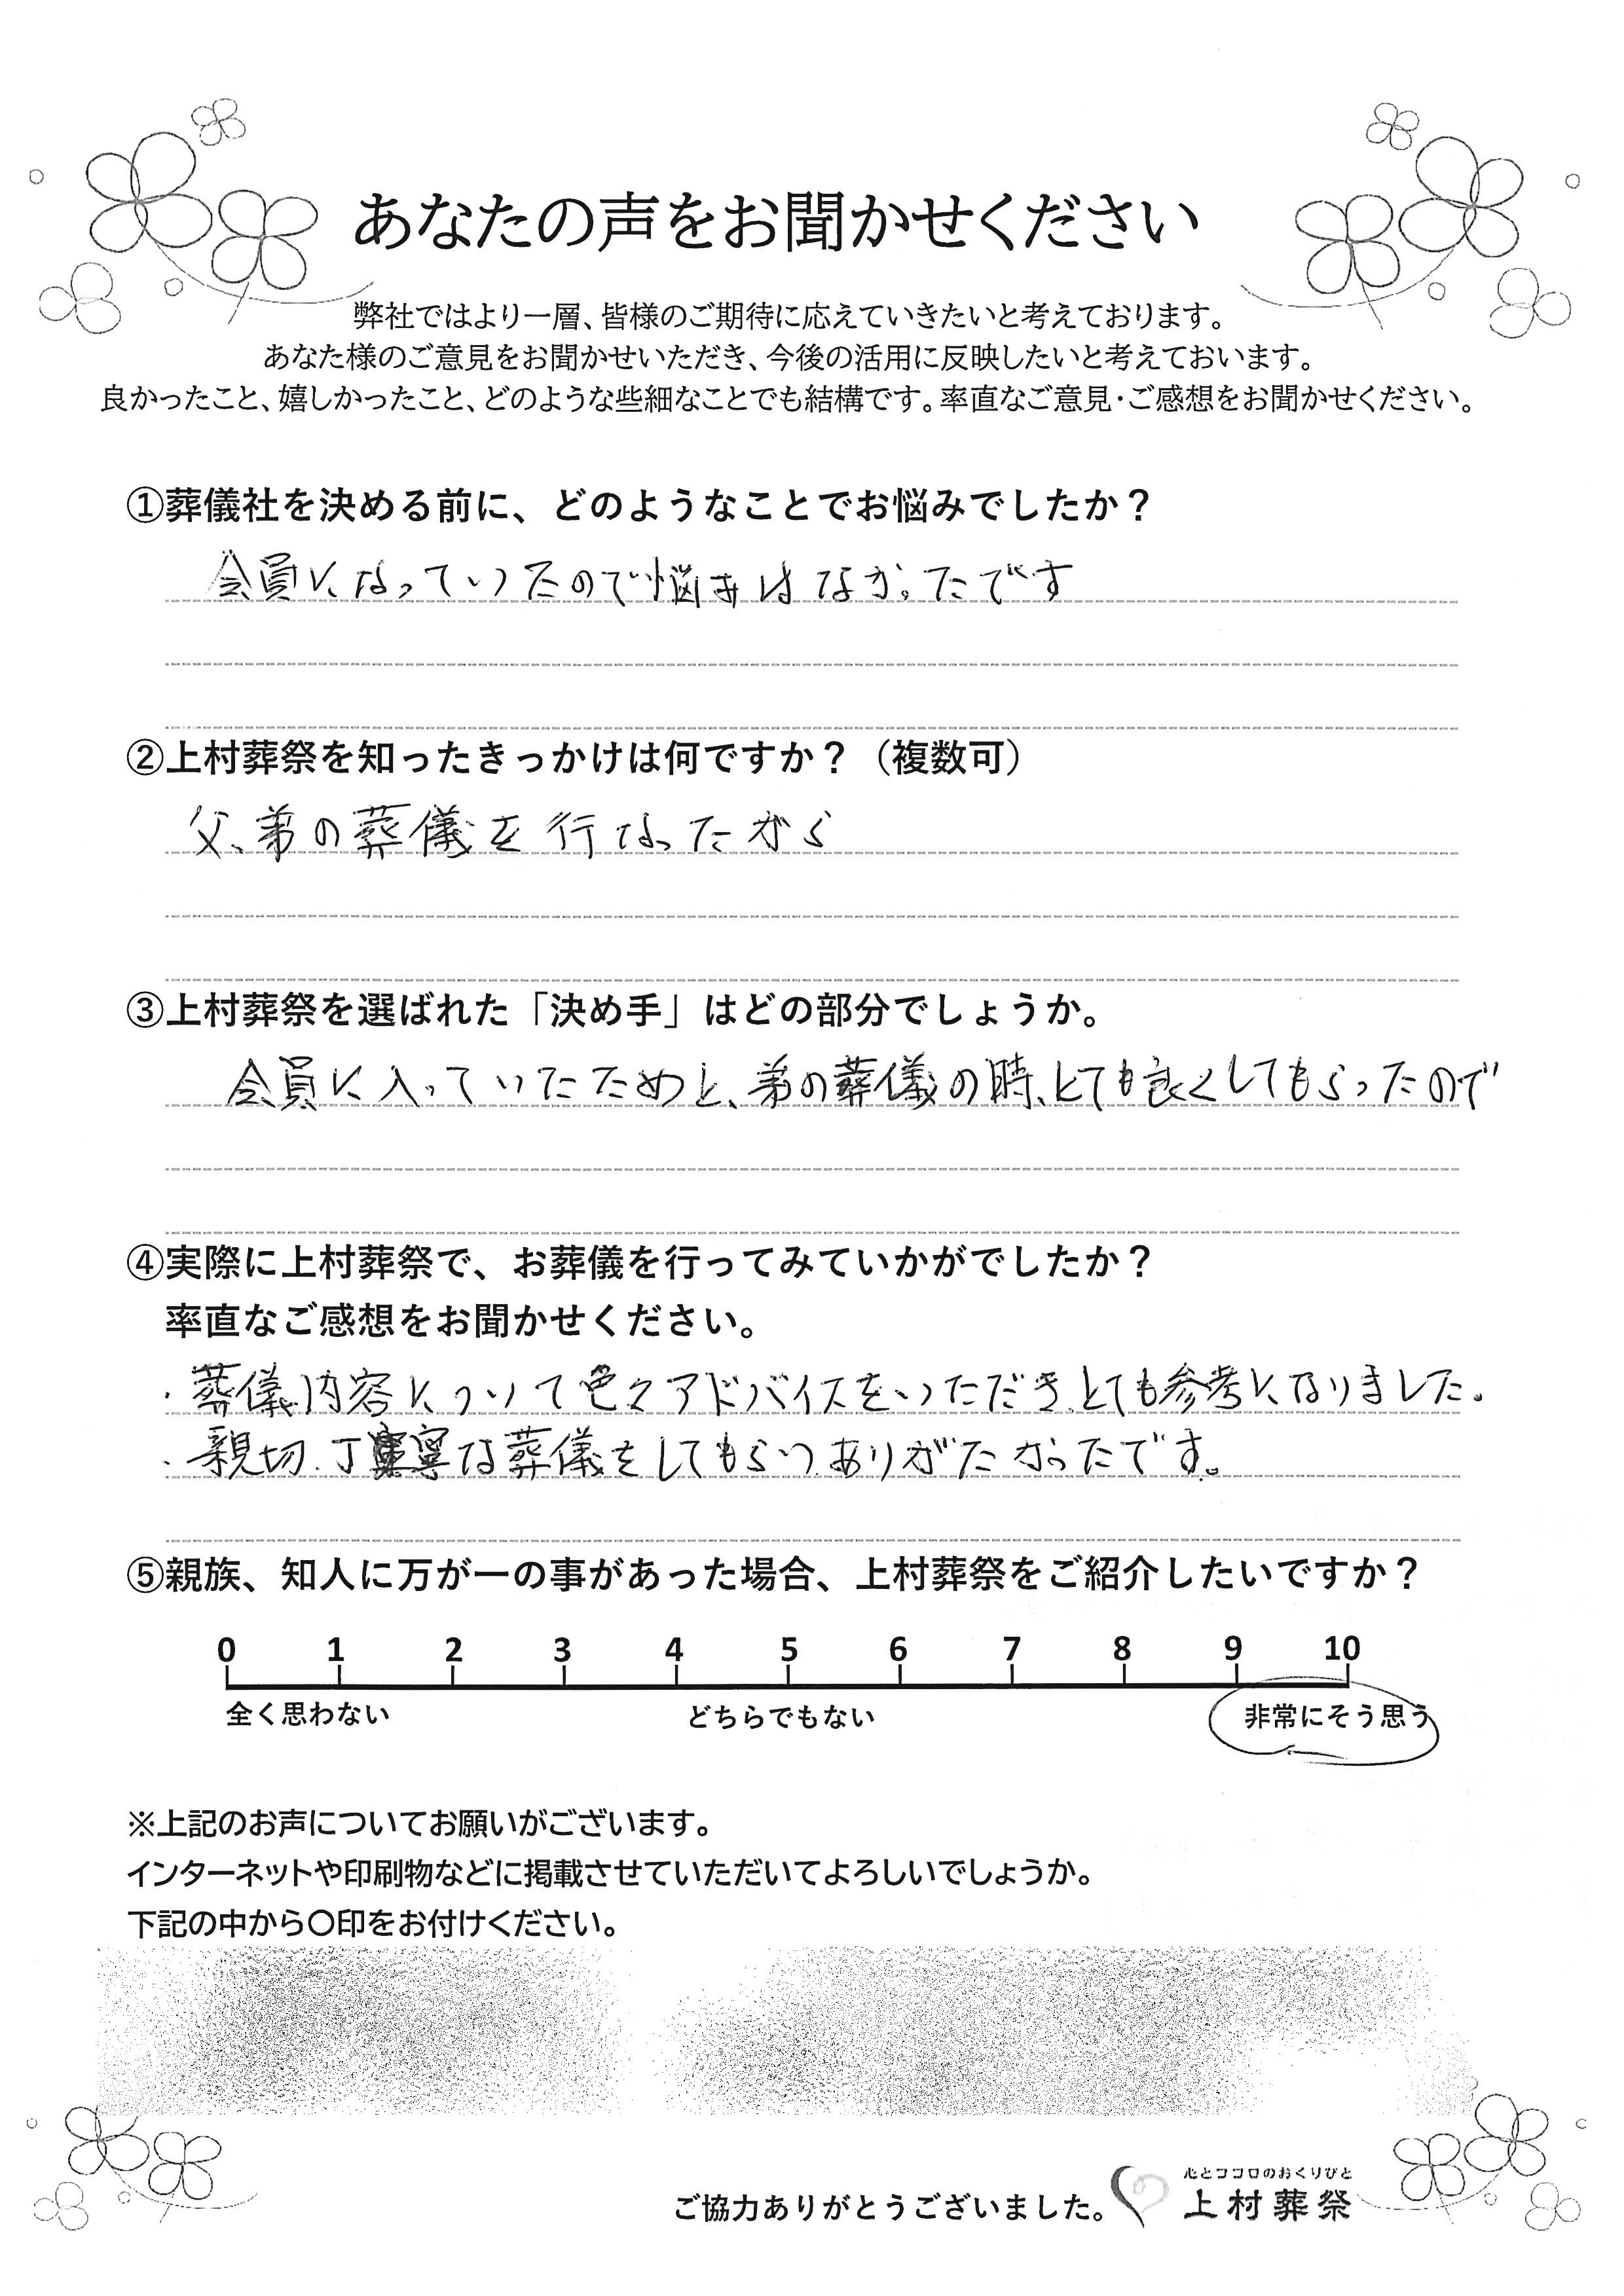 あなたの声をお聞かせください
弊社ではより一層、皆様のご期待に応えていきたいと考えております。
あなた様のご意見をお聞かせいただき、今後の活用に反映したいと考えておいます。
良かったこと、嬉しかったこと、どのような些細なことでも結構です。率直なご意見・ご感想をお聞かせください。
①葬儀社を決める前に、どのようなことでお悩みでしたか？
会員になっていたので悩みはなかったです
②上村葬祭を知ったきっかけは何ですか？（複数可）
父、弟の葬儀を行なったから
③上村葬祭を選ばれた「決め手」はどの部分でしょうか。
会員に入っていたためと、弟の葬儀の時、とても良くしてもらったので
④実際に上村葬祭で、お葬儀を行ってみていかがでしたか？
率直なご感想をお聞かせください。
・葬儀内容について色々アドバイスをいただき、とても参考になりました。
・親切、丁寧な葬儀をしてもらい、ありがたかったです。
⑤親族、知人に万が一の事があった場合、上村葬祭をご紹介したいですか？
0 1 2 3 4 5 6 7 8 9 10
全く思わない どちらでもない 非常にそう思う
※上記のお声についてお願いがございます。
インターネットや印刷物などに掲載させていただいてよろしいでしょうか。
下記の中から〇印をお付けください。
心とココロのおくりびと
ご協力ありがとうございました。 上村葬祭